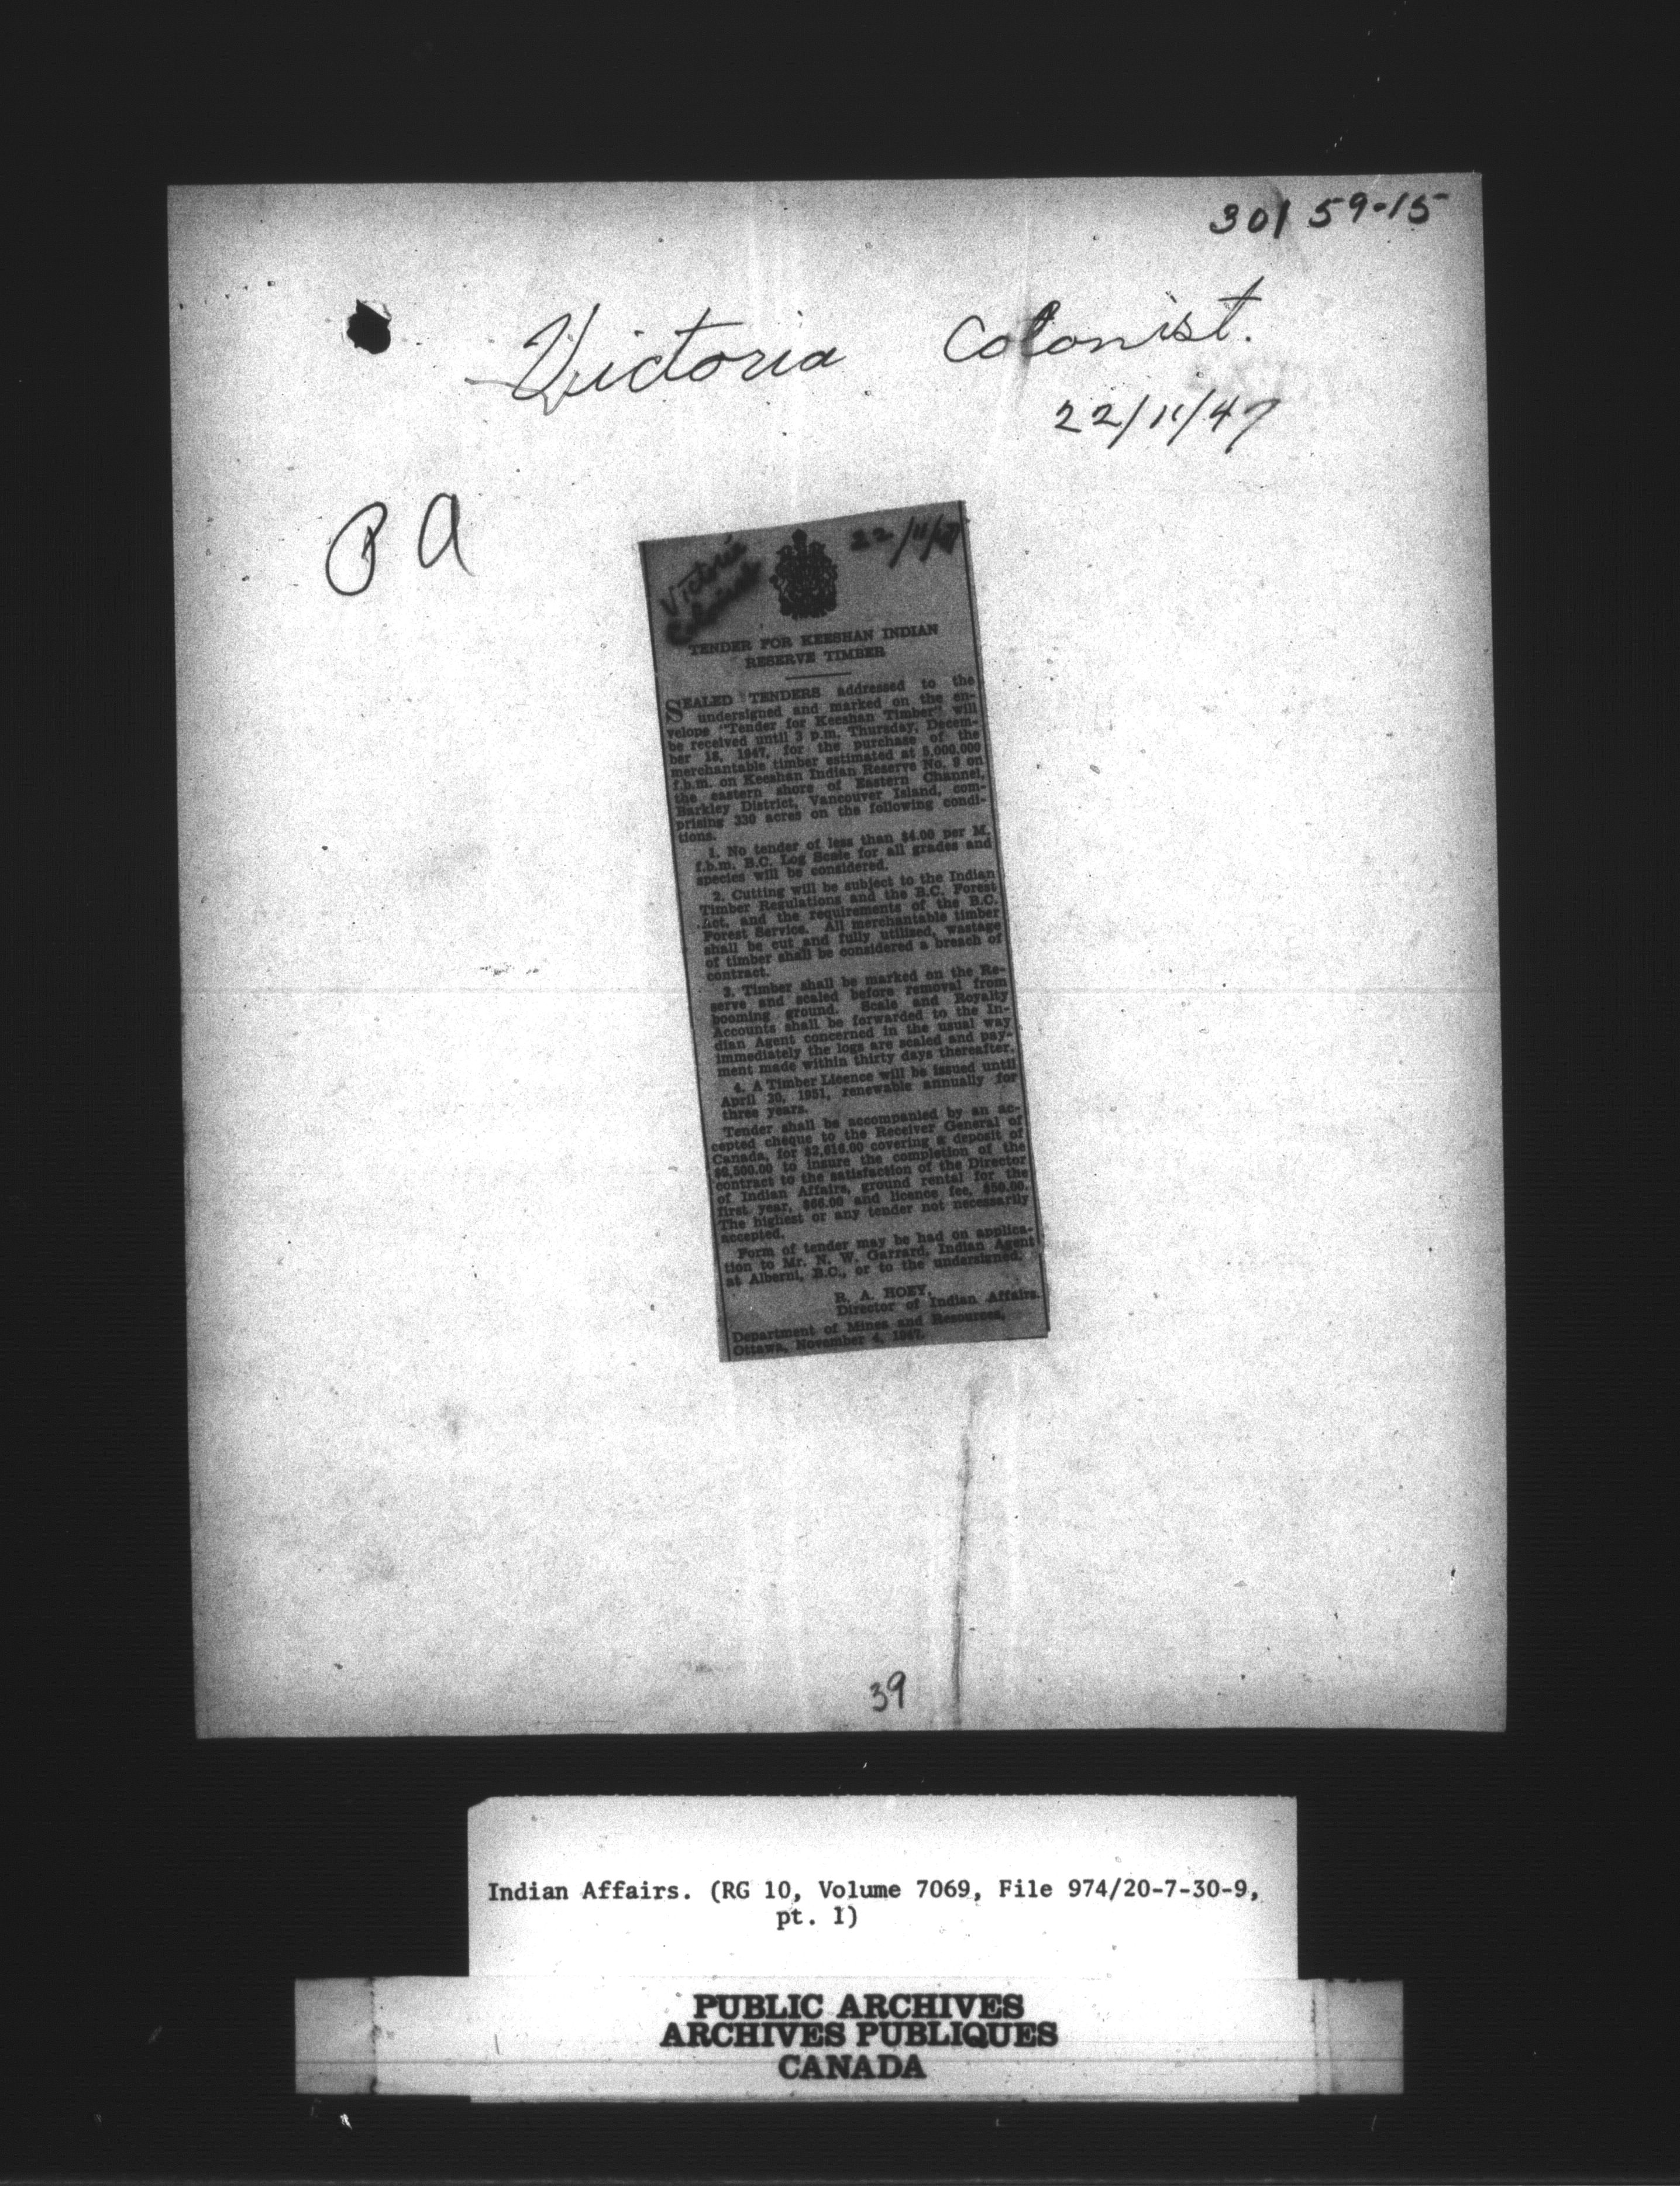 301 59-15
Victoria Colonist.
22/11/47
P A
Victoria
Colonist
22/11/47
TENDER FOR KEESHAN INDIAN
RESERVE TIMBER
SEALED TENDERS addressed to the
undersigned and marked on the en-
velope "Tender for Keeshan Timber" will
be received until 3 p.m. Thursday, Decem-
ber 18, 1947, for the purchase of the
merchantable timber estimated at 5,000,000
f.b.m. on Keeshan Indian Reserve No. 9 on
the eastern shore of Eastern Channel,
Barkley District, Vancouver Island, com-
prising 330 acres on the following condi-
tions.
1. No tender of less than $4.00 per M.
f.b.m. B.C. Log Scale for all grades and
species will be considered.
2. Cutting will be subject to the Indian
Timber Regulations and the B.C. Forest
Act, and the requirements of the B.C.
Forest Service. All merchantable timber
shall be cut and fully utilized, wastage
of timber shall be considered a breach of
contract.
3. Timber shall be marked on the Re-
serve and scaled before removal from
booming ground. Scale and Royalty
Accounts shall be forwarded to the In-
dian Agent concerned in the usual way
immediately the logs are scaled and pay-
ment made within thirty days thereafter.
4. A Timber Licence will be issued until
April 30, 1951, renewable annually for
three years.
Tender shall be accompanied by an ac-
cepted cheque to the Receiver General of
Canada, for $2,616.00 covering a deposit of
to insure the completion of the
contract to the satisfaction of the Director
of Indian Affairs, ground rental for the
first year, $66.00 and licence fee, $50.00.
The highest or any tender not necessarily
accepted.
Form of tender may be had on applica-
tion to Mr. N. W. Garrard, Indian Agent
at Alberni, B.C., or to the undersigned.
R. A. HOEY,
Director of Indian Affairs.
Department of Mines and Resources,
Ottawa, November 4, 1947.
39
Indian Affairs. (RG 10, Volume 7069, File 974/20-7-30-9,
pt. 1)
PUBLIC ARCHIVES
ARCHIVES PUBLIQUES
CANADA